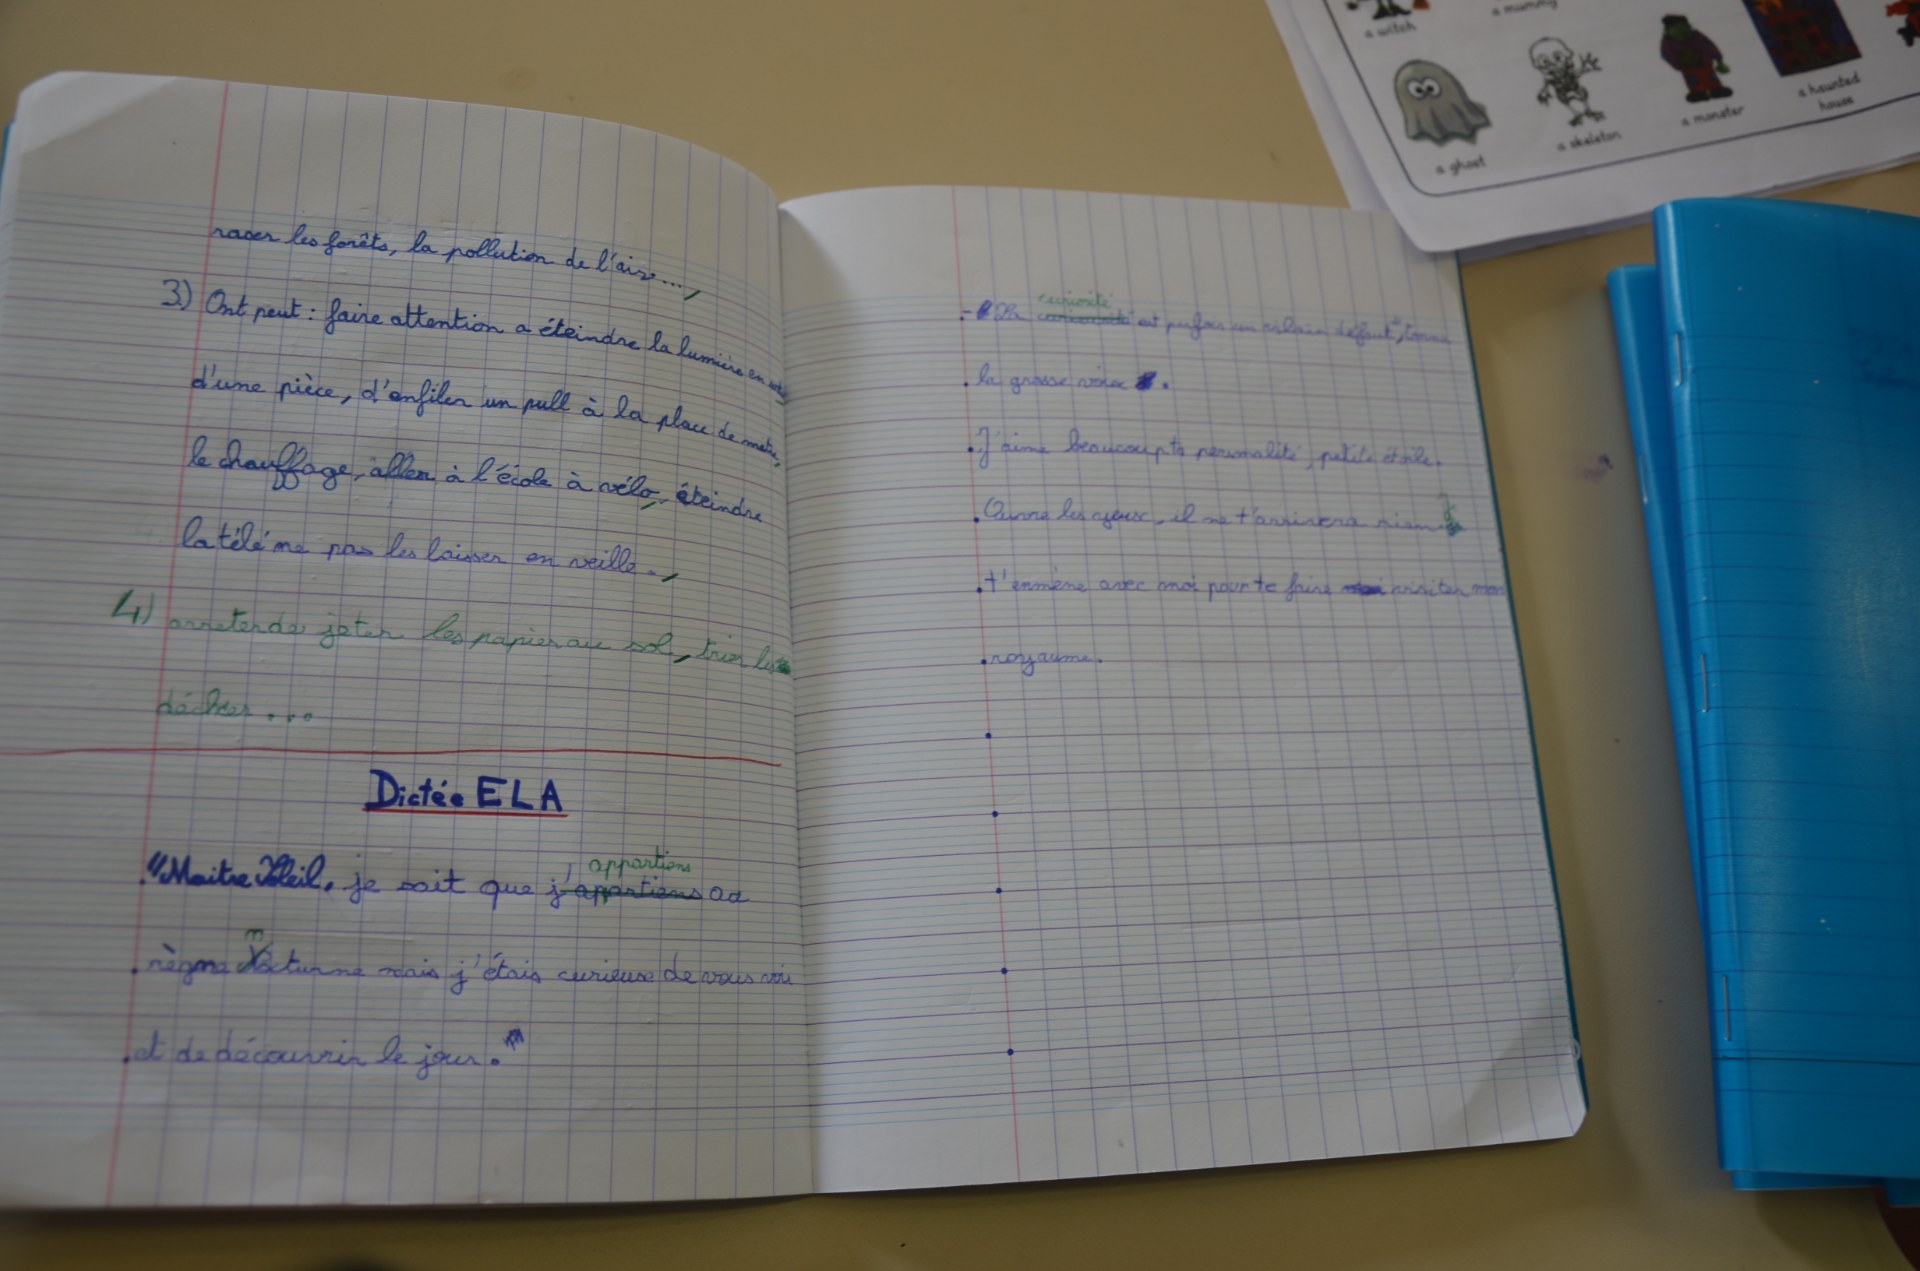 raser les forêts, la pollution de l'air...,
3) Ont peut : faire attention a éteindre la lumière en
d'une pièce, d'enfiler un pull à la place de metre,
le chauffage, aller à l'école à vélo, éteindre
la télé ne pas les laisser en veille.,
4) arreter de jeter les papier au sol, trier les
décher...
Dictée ELA
appartiens
"Maitre Soleil, je sait que j'apartiens au
n
règne Nocturne mais j'étais curieuse de vous voir
et de découvrir le jour."
curiosité
est parfois un vilain défaut", tonna
la grosse voix.
J'aime beaucoup ta personalité, petite étoile.
Ouvre les yeux, il ne t'arrivera rien
t'enmène avec moi pour te faire visiter mon
royaume.
a witch
a mummy
a ghost
a skeleton
a monster
a haunted
house